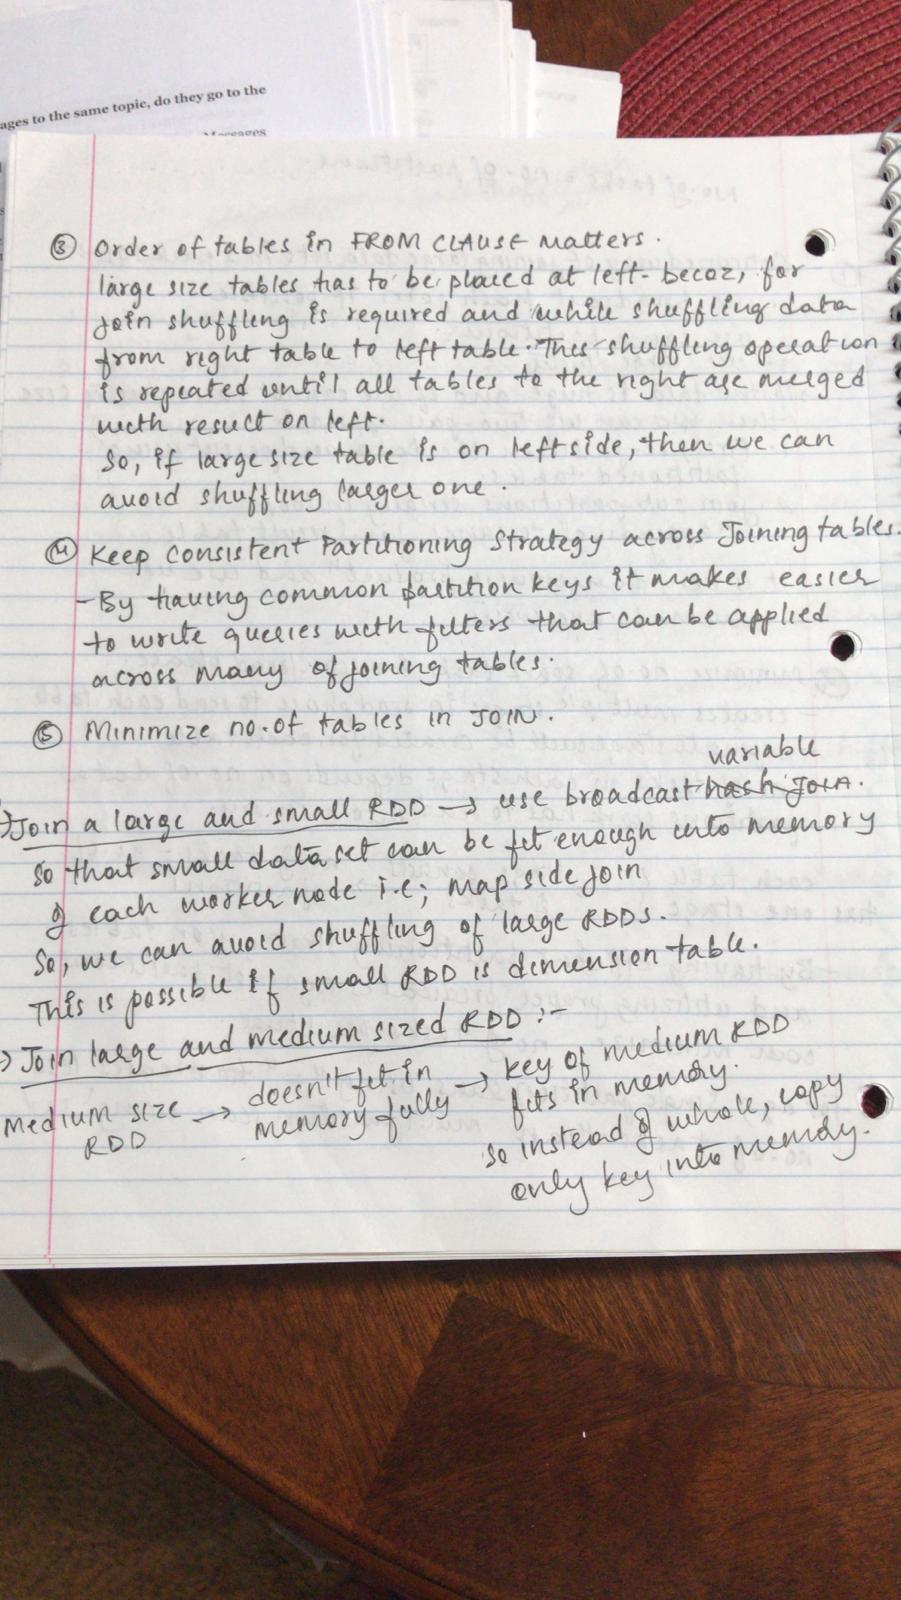 ages to the same topic, do they go to the
Messages
③ Order of tables in FROM CLAUSE matters.
large size tables has to be placed at left- becoz, for
join shuffling is required and while shuffling data
from right table to left table. This shuffling operation
is repeated until all tables to the right are merged
with result on left.
So, if large size table is on left side, then we can
avoid shuffling larger one.
④ Keep consistent Partitioning Strategy across Joining tables.
- By having common partition keys it makes easier
to write queries with filters that can be applied
across many of joining tables.
⑤ Minimize no. of tables in JOIN.
variable
→ Join a large and small RDD → use broadcast hash JOIN.
so that small data set can be fit enough into memory
of each worker node i.e; map side join
So, we can avoid shuffling of large RDDs.
This is possible if small RDD is dimension table.
→ Join large and medium sized RDD :-
Medium size RDD → doesn't fit in memory fully → key of medium RDD
fits in memory.
so instead of whole, copy
only key into memory.